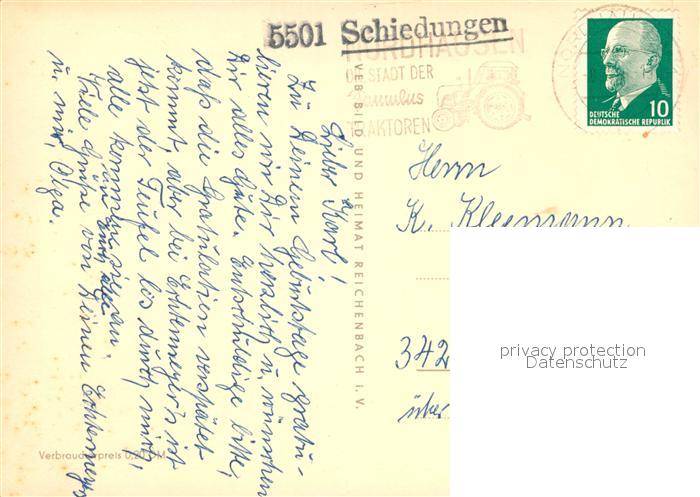 5501 Schiedungen
NORDHAUSEN
DIE STADT DER
Famulus
TRAKTOREN
10
DEUTSCHE
DEMOKRATISCHE REPUBLIK
Herrn
K. Kleemann
342
über
privacy protection
Datenschutz
VEB BILD UND HEIMAT REICHENBACH I. V.
Lieber Karl!
Zu Deinem Geburtstage gratu-
lieren wir Dir herzlich u. wünschen
Dir alles Gute. Entschuldige bitte,
daß die Gratulation verspätet
kommt, aber bei Echtemeyer's ist
jetzt der Teufel los durch mich,
alle kommen sie an.
Viele Grüße von Deinen Echtemeyers
an Euch alle
u. mir, Olga.
Verbraucherpreis 0,20 DM